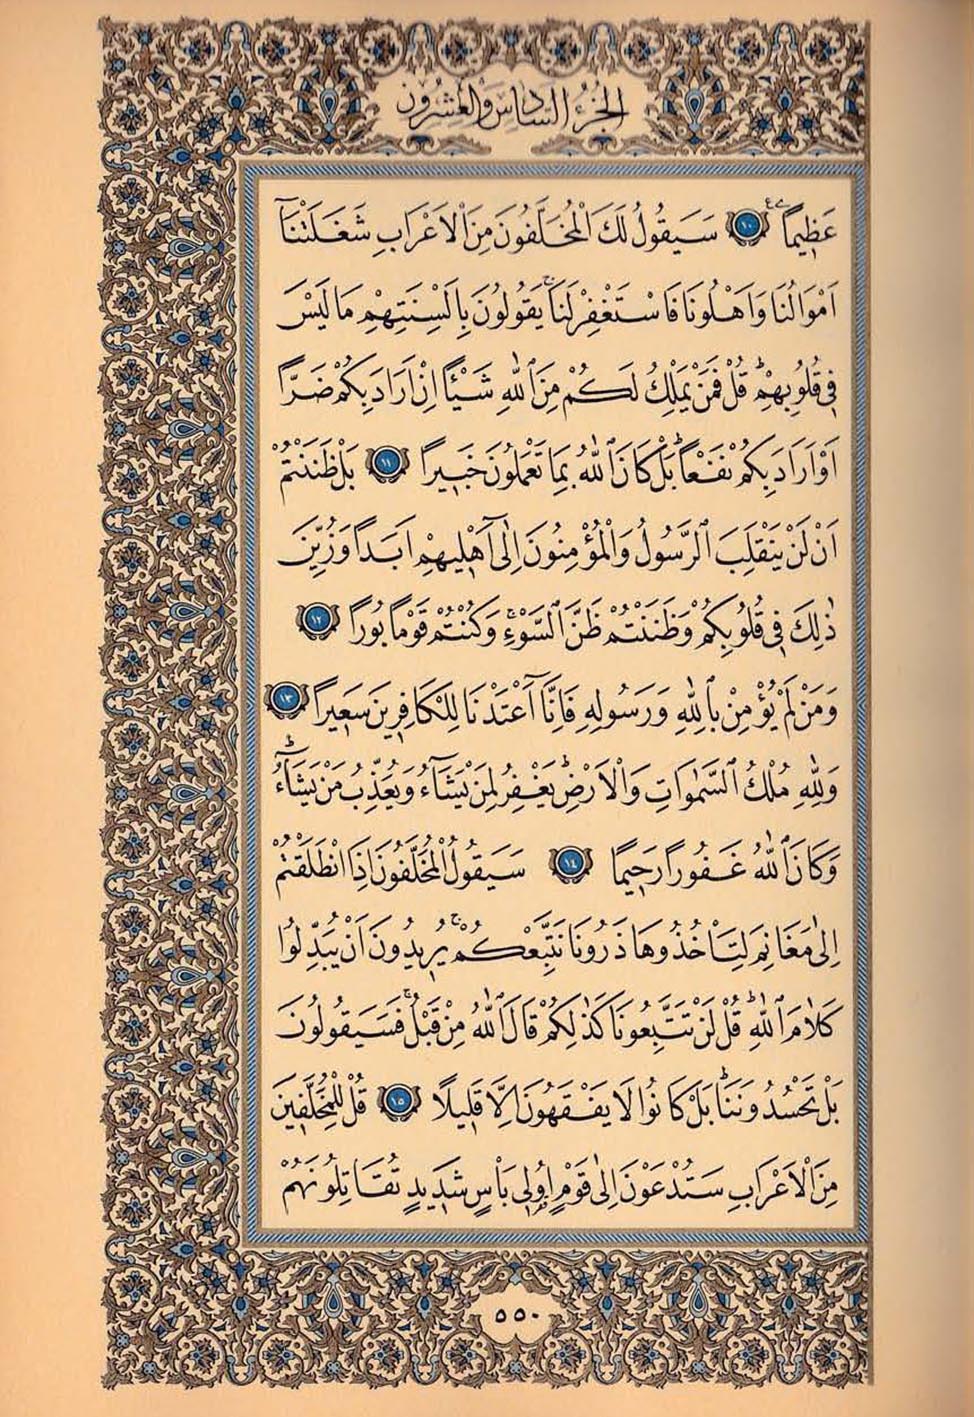 الجزء السادس والعشرون
عَظِيمًا ١٠ سَيَقُولُ لَكَ الْمُخَلَّفُونَ مِنَ الْاَعْرَابِ شَغَلَتْنَٓا
اَمْوَالُنَا وَاَهْلُونَا فَاسْتَغْفِرْ لَنَاۚ يَقُولُونَ بِاَلْسِنَتِهِمْ مَا لَيْسَ
فِي قُلُوبِهِمْۜ قُلْ فَمَنْ يَمْلِكُ لَكُمْ مِنَ اللّٰهِ شَيْـًٔا اِنْ اَرَادَ بِكُمْ ضَرًّا
اَوْ اَرَادَ بِكُمْ نَفْعًاۜ بَلْ كَانَ اللّٰهُ بِمَا تَعْمَلُونَ خَبِيرًا ١١ بَلْ ظَنَنْتُمْ
اَنْ لَنْ يَنْقَلِبَ الرَّسُولُ وَالْمُؤْمِنُونَ اِلٰٓى اَهْلِيهِمْ اَبَدًا وَزُيِّنَ
ذٰلِكَ فِي قُلُوبِكُمْ وَظَنَنْتُمْ ظَنَّ السَّوْءِۚ وَكُنْتُمْ قَوْمًا بُورًا ١٢
وَمَنْ لَمْ يُؤْمِنْ بِاللّٰهِ وَرَسُولِهِ فَاِنَّٓا اَعْتَدْنَا لِلْكَافِرِينَ سَعِيرًا ١٣
وَلِلّٰهِ مُلْكُ السَّمٰوَاتِ وَالْاَرْضِۜ يَغْفِرُ لِمَنْ يَشَٓاءُ وَيُعَذِّبُ مَنْ يَشَٓاءُۜ
وَكَانَ اللّٰهُ غَفُورًا رَحِيمًا ١٤ سَيَقُولُ الْمُخَلَّفُونَ اِذَا انْطَلَقْتُمْ
اِلٰى مَغَانِمَ لِتَأْخُذُوهَا ذَرُونَا نَتَّبِعْكُمْۚ يُرِيدُونَ اَنْ يُبَدِّلُوا
كَلَامَ اللّٰهِۜ قُلْ لَنْ تَتَّبِعُونَا كَذٰلِكُمْ قَالَ اللّٰهُ مِنْ قَبْلُۚ فَسَيَقُولُونَ
بَلْ تَحْسُدُونَنَاۜ بَلْ كَانُوا لَا يَفْقَهُونَ اِلَّا قَلِيلًا ١٥ قُلْ لِلْمُخَلَّفِينَ
مِنَ الْاَعْرَابِ سَتُدْعَوْنَ اِلٰى قَوْمٍ اُولِي بَأْسٍ شَدِيدٍ تُقَاتِلُونَهُمْ
٥٥٠